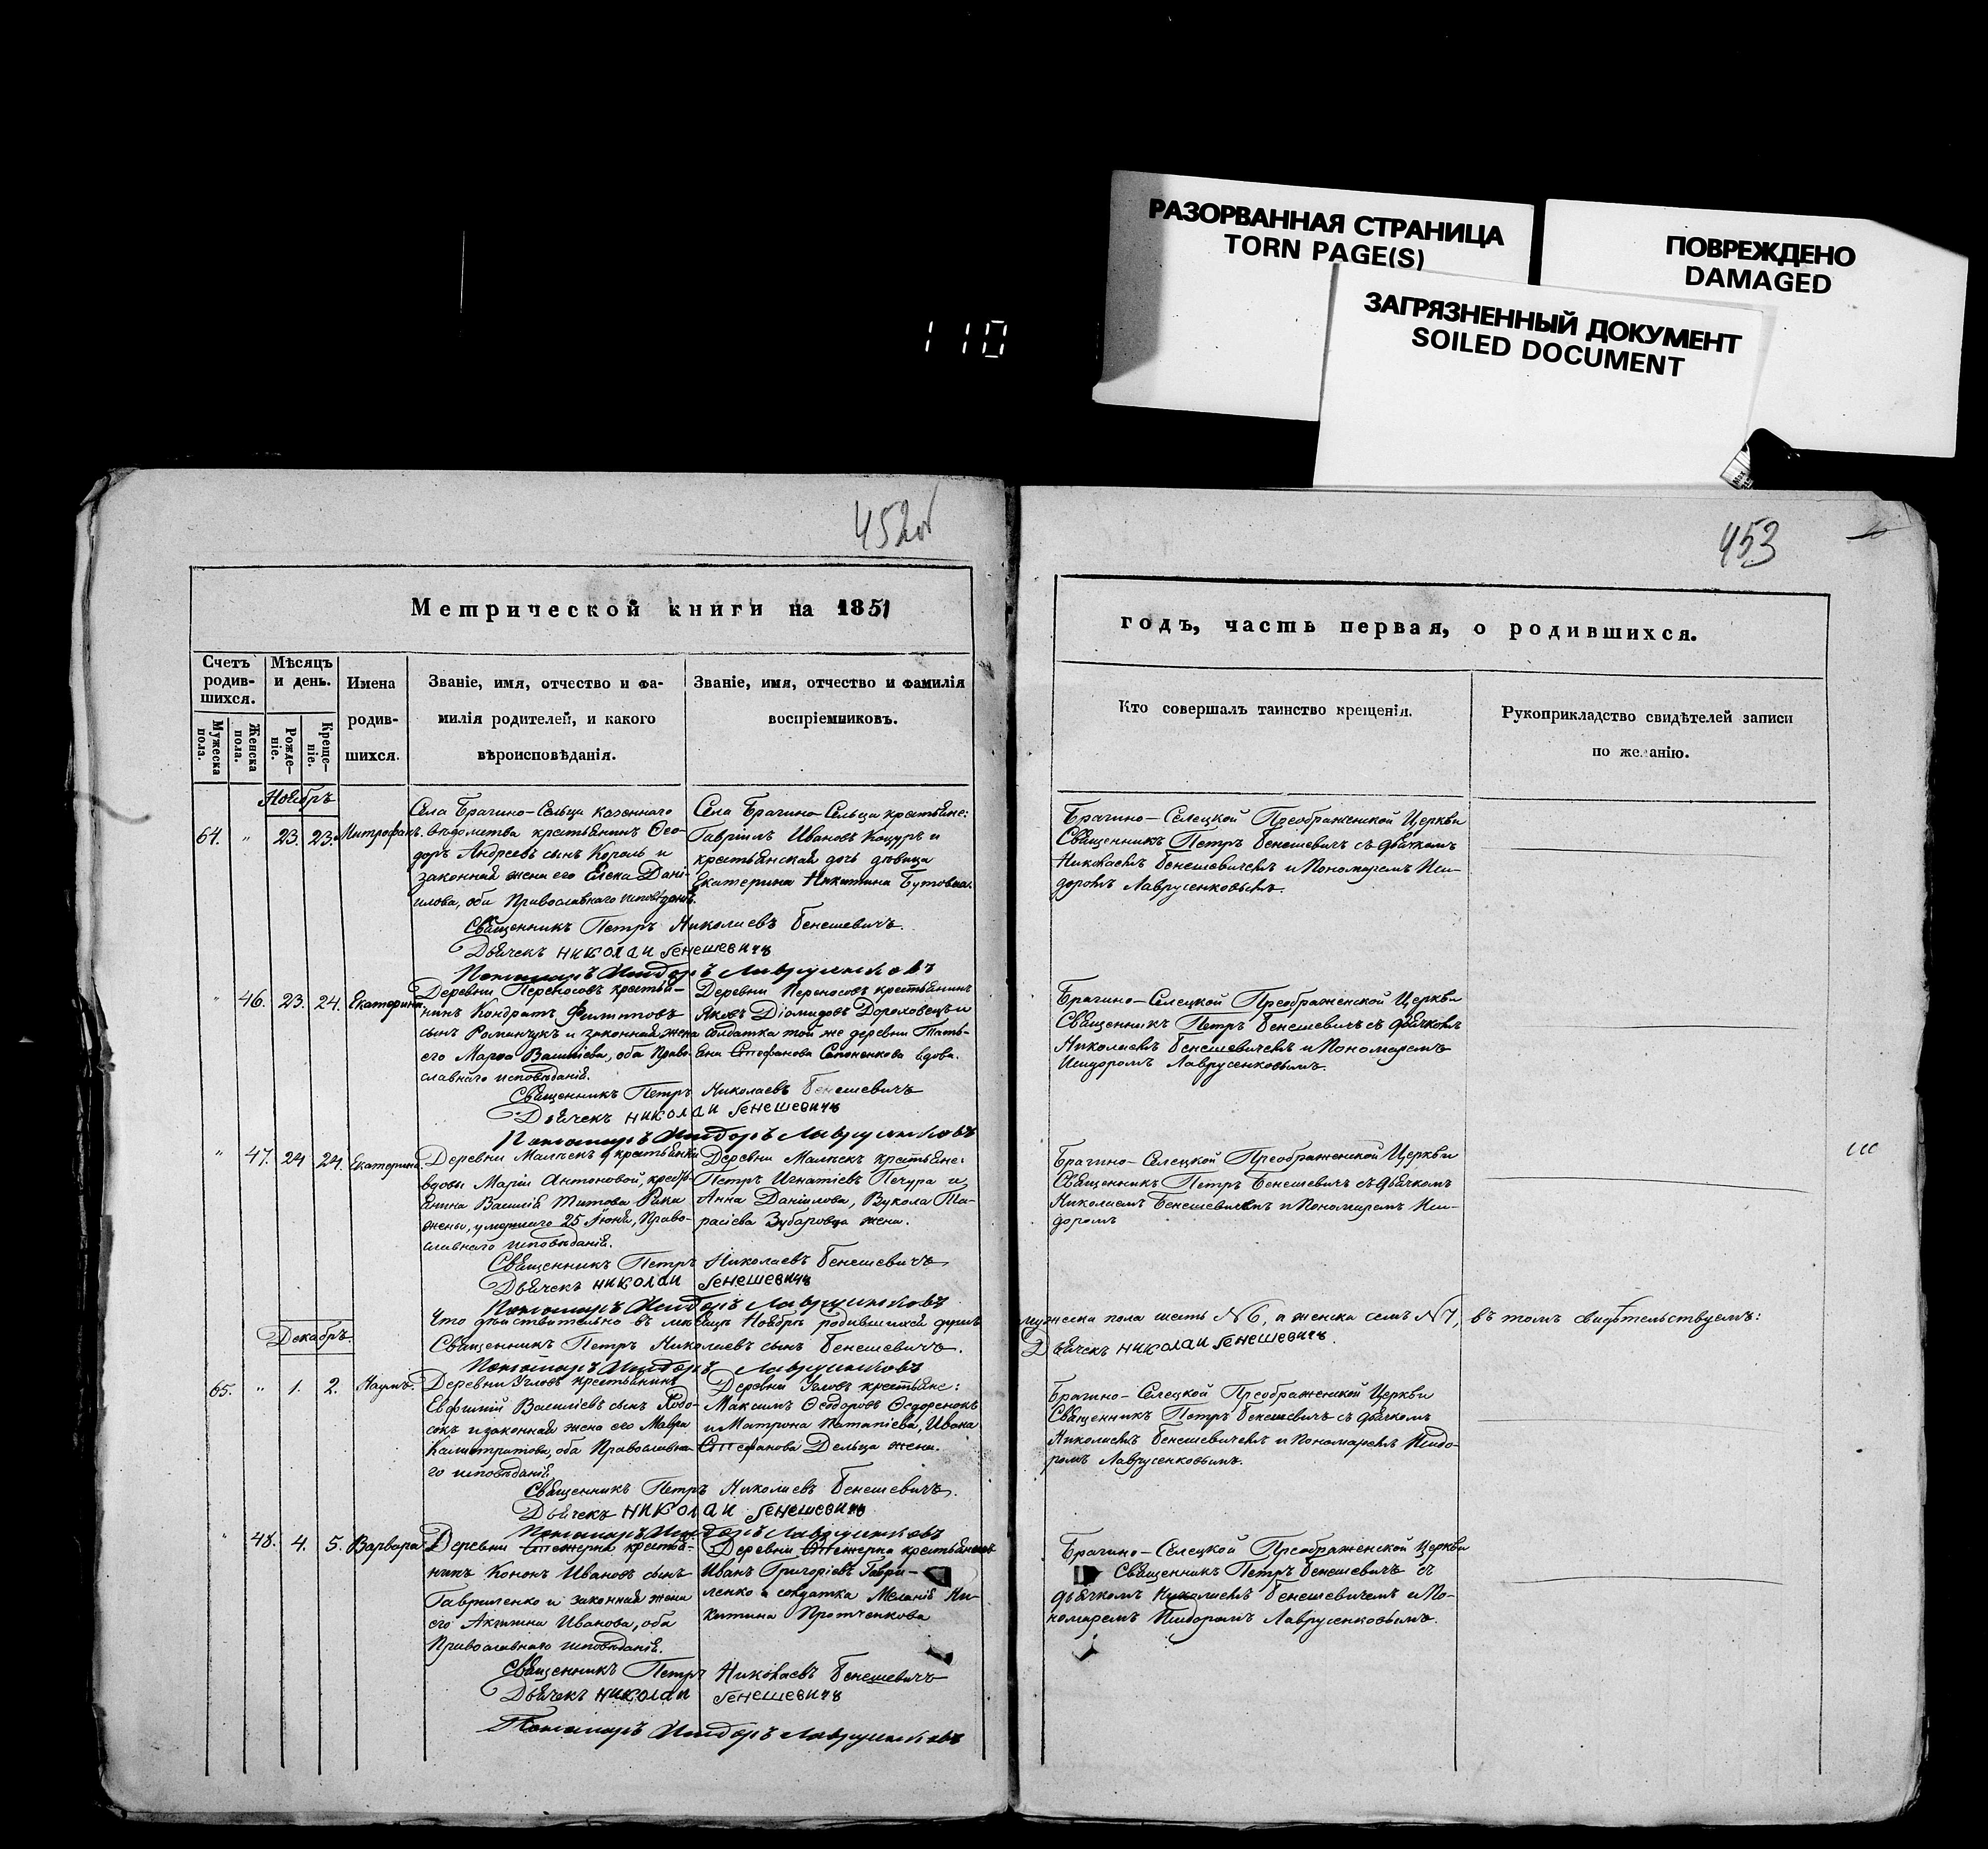 РАЗОРВАННАЯ СТРАНИЦА
TORN PAGE(S)
ПОВРЕЖДЕНО
DAMAGED
ЗАГРЯЗНЕННЫЙ ДОКУМЕНТ
SOILED DOCUMENT
110
453
Метрической книги на 1851
годъ, часть первая, о родившихся.
Счетъ родив-шихся.
Мужеска пола.
Женска пола.
Мѣсяцъ и день.
Рожде-ніе.
Креще-ніе.
Имена
родив-
шихся.
Званіе, имя, отчество и фа-
милія родителей, и какого
вѣроисповѣданія.
Званіе, имя, отчество и фамилія
воспріемниковъ.
Кто совершалъ таинство крещенія.
Рукоприкладство свидѣтелей записи
по желанію.
Ноябрь
64. " 23. 23. Митрофанъ.
Села Брагино-Сельца казеннаго
вѣдомства крестьянинъ Ѳео-
доръ Андреевъ сынъ Король и
законная жена его Елена Дані-
илова, оба Православнаго исповѣданія.
Села Брагино-Сельца крестьяне:
Гавріилъ Ивановъ Коцуръ и
крестьянская дочь дѣвица
Екатерина Никитина
Брагино-Селецкой Преображенской Церкви
Священникъ Петръ Бенешевичъ съ дьячкомъ
Николаемъ Бенешевичемъ и Пономаремъ Иси-
доромъ Лаврусенковымъ.
Священникъ Петръ Николаевъ Бенешевичъ.
Дьячекъ Николаи Бенешевичъ
Пономарь Исидоръ Лаврусенковъ
" 46. 23. 24. Екатерина.
Деревни Переносовъ крестья-
нинъ Кондратъ Филиповъ
сынъ Романчукъ и законная жена
его Марѳа Василіева, оба Право-
славнаго исповѣданія.
Деревни Переносовъ крестьянинъ
Яковъ Діомидовъ и
солдатка той же деревни Тать-
яна Стефанова вдова.
Брагино-Селецкой Преображенской Церкви
Священникъ Петръ Бенешевичъ съ дьячкомъ
Николаемъ Бенешевичемъ и Пономаремъ
Исидоромъ Лаврусенковымъ.
Священникъ Петръ Николаевъ Бенешевичъ
Дьячекъ Николаи Бенешевичъ
Пономарь Исидоръ Лаврусенковъ
" 47. 24 24. Екатерина.
Деревни у крестьянки
вдовы Маріи Антоновой, кресть-
янина Василія Титова
жены, умершаго 25 Іюня, Право-
славнаго исповѣданія.
Деревни крестьяне:
Петръ Игнатіевъ Печура и
Анна Даніилова, Вукола Та-
расіева Зубаровца жена.
Брагино-Селецкой Преображенской Церкви
Священникъ Петръ Бенешевичъ съ дьячкомъ
Николаемъ Бенешевичемъ и Пономаремъ Иси-
доромъ
Священникъ Петръ Николаевъ Бенешевичъ
Дьячекъ Николаи Бенешевичъ
Пономарь Исидоръ Лаврусенковъ
Что дѣйствительно въ мѣсяцѣ Ноябрѣ родившихся душъ мужеска пола шесть №6, а женска семъ №7, въ томъ свидѣтельствуемъ:
Священникъ Петръ Николаевъ сынъ Бенешевичъ. Дьячекъ Николаи Бенешевичъ.
Пономарь Исидоръ Лаврусенковъ
Декабрь.
65. " 1. 2. Наумъ.
Деревни Угловъ крестьянинъ
Евфимій Василіевъ сынъ
и законная жена его Мавра
Калистратова, оба Православна-
го исповѣданія.
Деревни Угловъ крестьяне:
Максимъ Ѳеодоровъ Ѳедоренокъ
и Матрона Патапіева, Ивана
Стефанова Дельца жена.
Брагино-Селецкой Преображенской Церкви
Священникъ Петръ Бенешевичъ съ дьячкомъ
Николаемъ Бенешевичемъ и Пономаремъ Исидо-
ромъ Лаврусенковымъ.
Священникъ Петръ Николаевъ Бенешевичъ.
Дьячекъ Николаи Бенешевичъ
Пономарь Исидоръ Лаврусенковъ
" 48. 4. 5. Варвара
Деревни Стежерна крестья-
нинъ Кононъ Ивановъ сынъ
Гавриленко и законная жена
его Акилина Иванова, оба
Православнаго исповѣданія.
Деревни Стежерна крестьянинъ
Иванъ Григоріевъ Гаври-
ленко и солдатка Меланія Ни-
китина Протченкова
Брагино-Селецкой Преображенской Церкви
Священникъ Петръ Бенешевичъ съ
дьячкомъ Николаемъ Бенешевичемъ и По-
номаремъ Исидоромъ Лаврусенковымъ.
Священникъ Петръ Николаевъ Бенешевичъ
Дьячекъ Николаи Бенешевичъ
Пономарь Исидоръ Лаврусенковъ